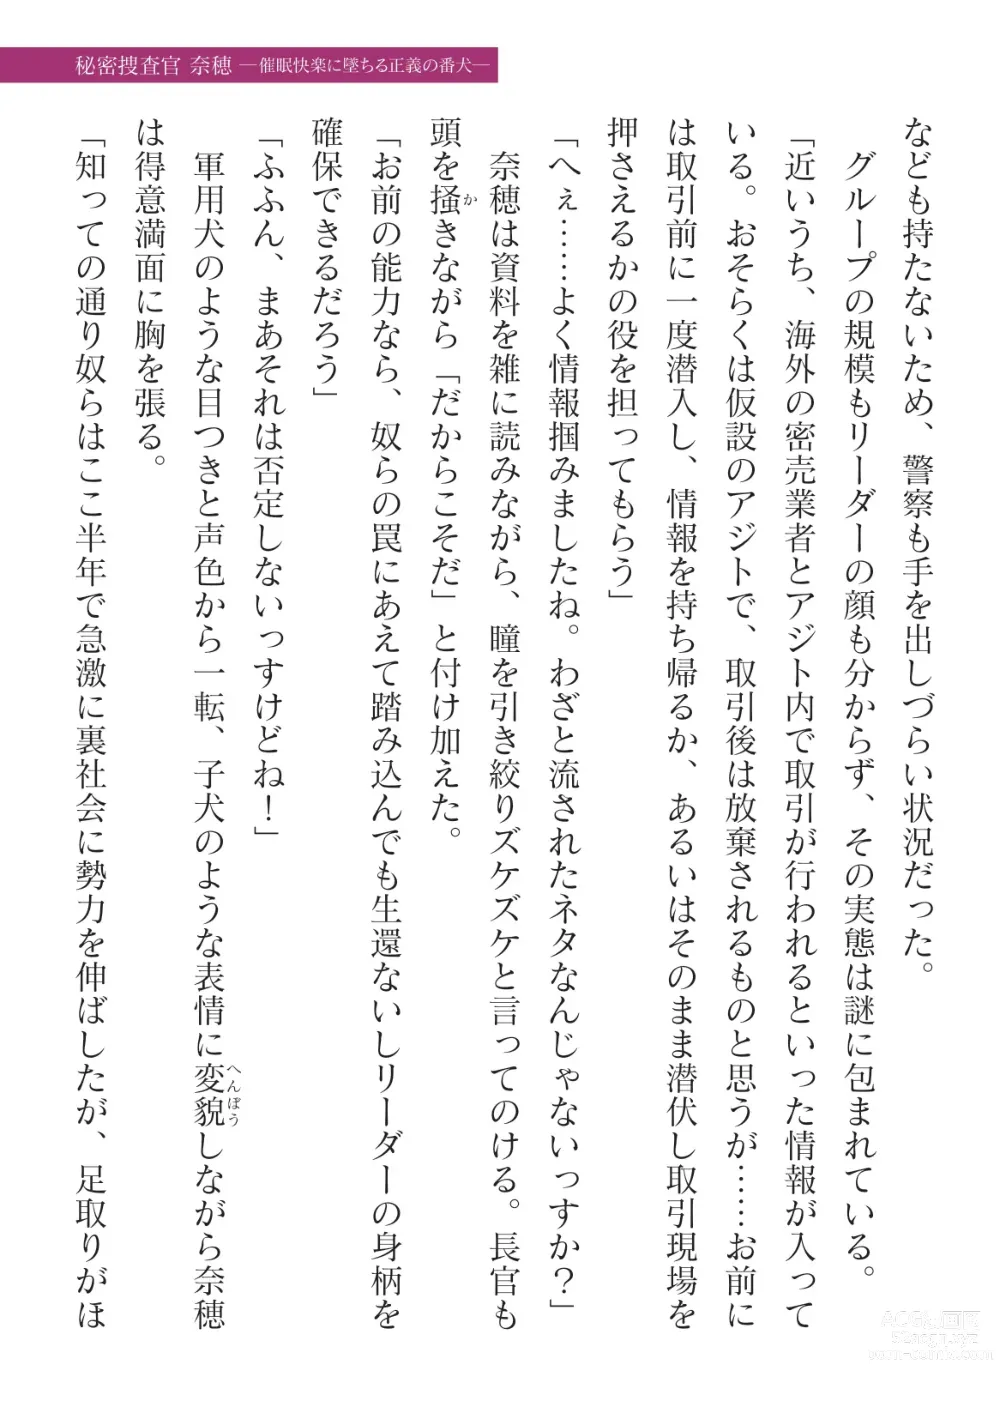 秘密捜査官 奈穂 ―催眠快楽に墜ちる正義の番犬―
なども持たないため、警察も手を出しづらい状況だった。
グループの規模もリーダーの顔も分からず、その実態は謎に包まれている。
「近いうち、海外の密売業者とアジト内で取引が行われるといった情報が入って
いる。おそらくは仮設のアジトで、取引後は放棄されるものと思うが……お前に
は取引前に一度潜入し、情報を持ち帰るか、あるいはそのまま潜伏し取引現場を
押さえるかの役を担ってもらう」
「へぇ……よく情報掴みましたね。わざと流されたネタなんじゃないっすか？」
奈穂は資料を雑に読みながら、瞳を引き絞りズケズケと言ってのける。長官も
頭を掻きながら「だからこそだ」と付け加えた。
か
「お前の能力なら、奴らの罠にあえて踏み込んでも生還ないしリーダーの身柄を
確保できるだろう」
「ふふん、まあそれは否定しないっすけどね！」
軍用犬のような目つきと声色から一転、子犬のような表情に変貌しながら奈穂
へんぼう
は得意満面に胸を張る。
「知っての通り奴らはここ半年で急激に裏社会に勢力を伸ばしたが、足取りがほ